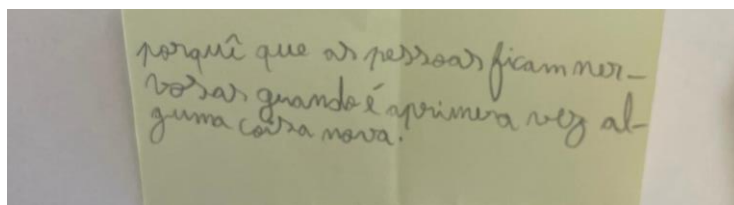 porquê que as pessoas ficam ner-
vosas quando é aprimera vez al-
guma coisa nova.